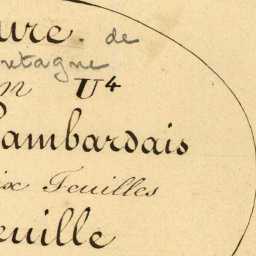 ure. de
etagne
n U4
Lambardais
ix Feuilles
euille